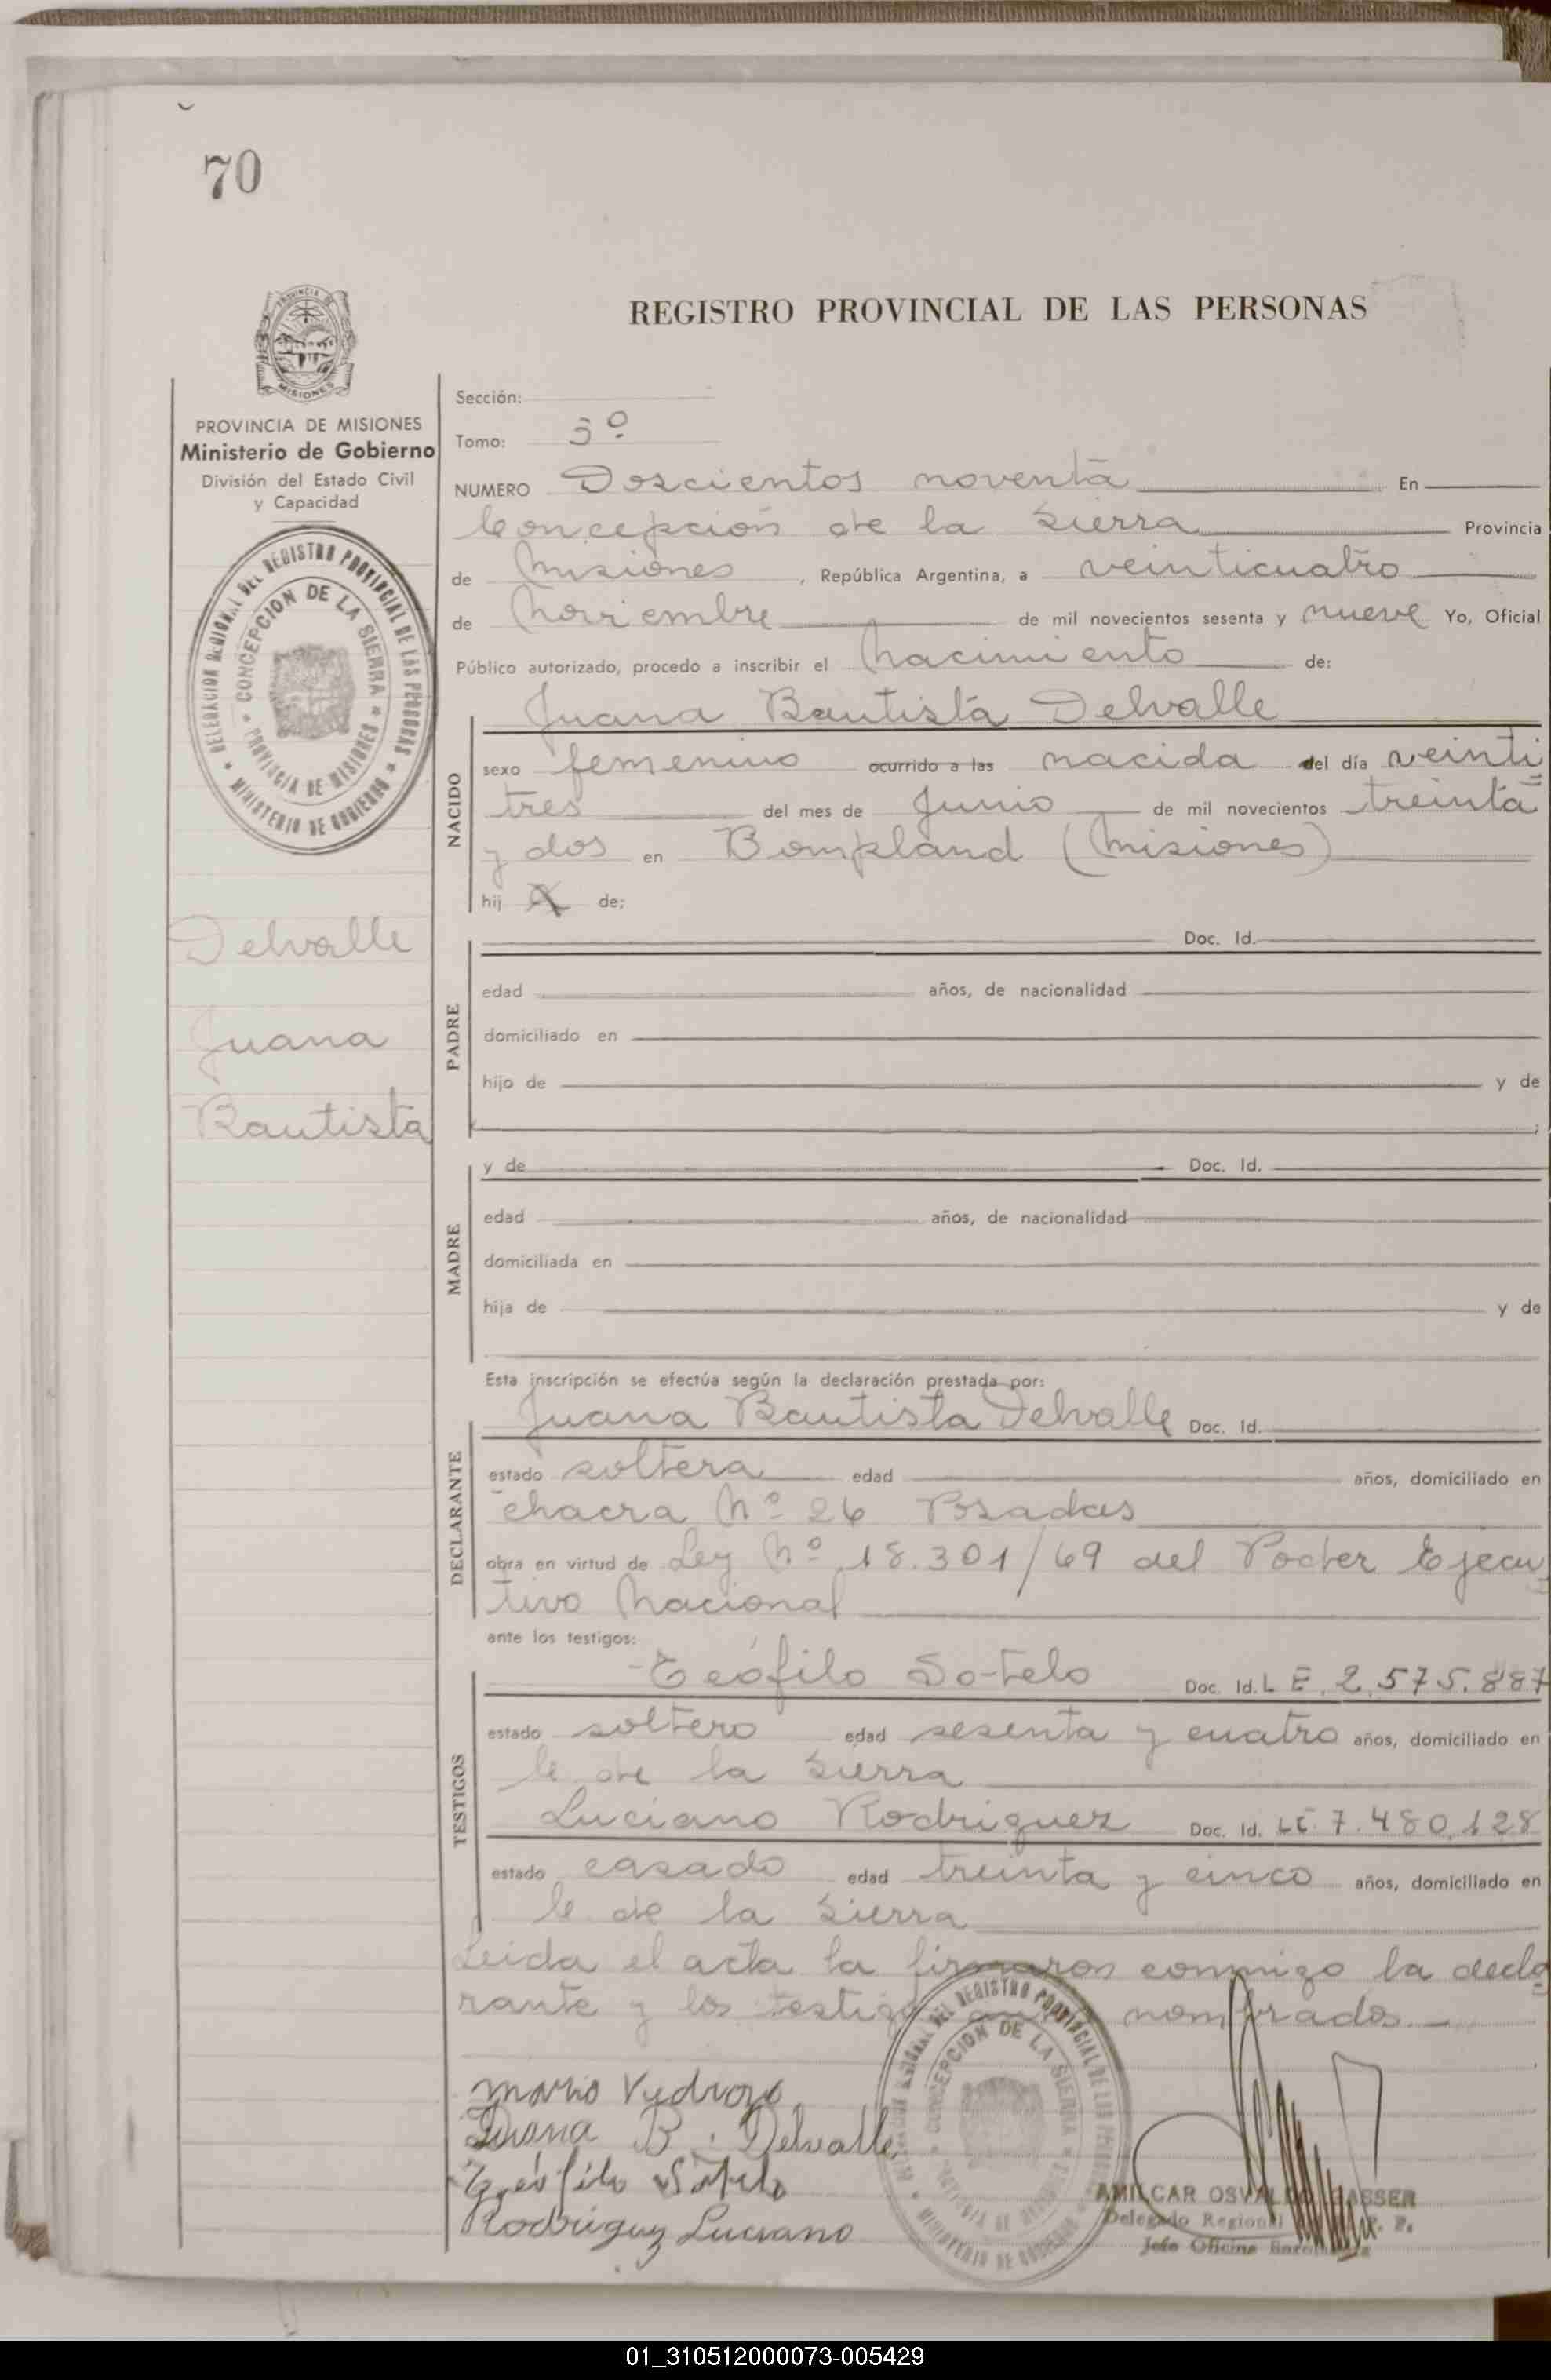 70
REGISTRO PROVINCIAL DE LAS PERSONAS
PROVINCIA DE
MISIONES
PROVINCIA DE MISIONES
Ministerio de Gobierno
División del Estado Civil
y Capacidad
DELEGACION REGIONAL DEL REGISTRO PROVINCIAL DE LAS PERSONAS
CONCEPCION DE LA SIERRA
PROVINCIA DE MISIONES
MINISTERIO DE GOBIERNO
Delvalle
Juana
Bautista
Sección:
Tomo: 3º
NUMERO Doscientos noventa En
Concepción de la Sierra Provincia
de Misiones, República Argentina, a veinticuatro
de Noviembre de mil novecientos sesenta y nueve Yo, Oficial
Público autorizado, procedo a inscribir el Nacimiento de:
NACIDO
Juana Bautista Delvalle
sexo femenino ocurrido a las nacida del día veinti
tres del mes de Junio de mil novecientos treinta
y dos en Bompland (Misiones)
hij a de;
PADRE
Doc. Id.
edad años, de nacionalidad
domiciliado en
hijo de y de
MADRE
y de Doc. Id.
edad años, de nacionalidad
domiciliada en
hija de y de
Esta inscripción se efectúa según la declaración prestada por:
DECLARANTE
Juana Bautista Delvalle Doc. Id.
estado soltera edad años, domiciliado en
chacra Nº 26 Posadas
obra en virtud de Ley Nº 18.301/69 del Poder Ejecu
tivo Nacional
ante los testigos:
TESTIGOS
Teófilo Sotelo Doc. Id. L E. 2.575.887
estado soltero edad sesenta y cuatro años, domiciliado en
C. de la Sierra
Luciano Rodriguez Doc. Id. LE. 7.480.128
estado casado edad treinta y cinco años, domiciliado en
C. de la Sierra
Leida el acta la firmaron conmigo la decla
rante y los testigos nombrados.
DEL REGISTRO PROVINCIAL DE LAS
CONCEPCION DE LA SIERRA
MINISTERIO DE GOBIERNO
Mario
Juana B. Delvalle
Teófilo Sotelo
Rodriguez Luciano
AMILCAR OSVALDO GASSER
Delegado Regional R. P. P.
Jefe Oficina
01_310512000073-005429